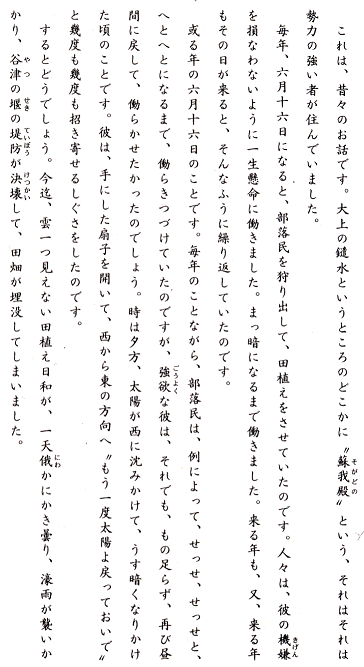 これは、昔々のお話です。大上の鑓水というところのどこかに〝蘇我殿〟という、それはそれは
勢力の強い者が住んでいました。
毎年、六月十六日になると、部落民を狩り出して、田植えをさせていたのです。人々は、彼の機嫌
を損なわないように一生懸命に働きました。まっ暗になるまで働きました。来る年も、又、来る年
もその日が来ると、そんなふうに繰り返していたのです。
或る年の六月十六日のことです。毎年のことながら、部落民は、例によって、せっせ、せっせと、
へとへとになるまで、働らきつづけていたのですが、強欲な彼は、それでも、もの足らず、再び昼
間に戻して、働らかせたかったのでしょう。時は夕方、太陽が西に沈みかけて、うす暗くなりかけ
た頃のことです。彼は、手にした扇子を開いて、西から東の方向へ〝もう一度太陽よ戻っておいで〟
と幾度も幾度も招き寄せるしぐさをしたのです。
するとどうでしょう。今迄、雲一つ見えない田植え日和が、一天俄かにかき曇り、濠雨が襲いか
かり、谷津の堰の堤防が決壊して、田畑が埋没してしまいました。